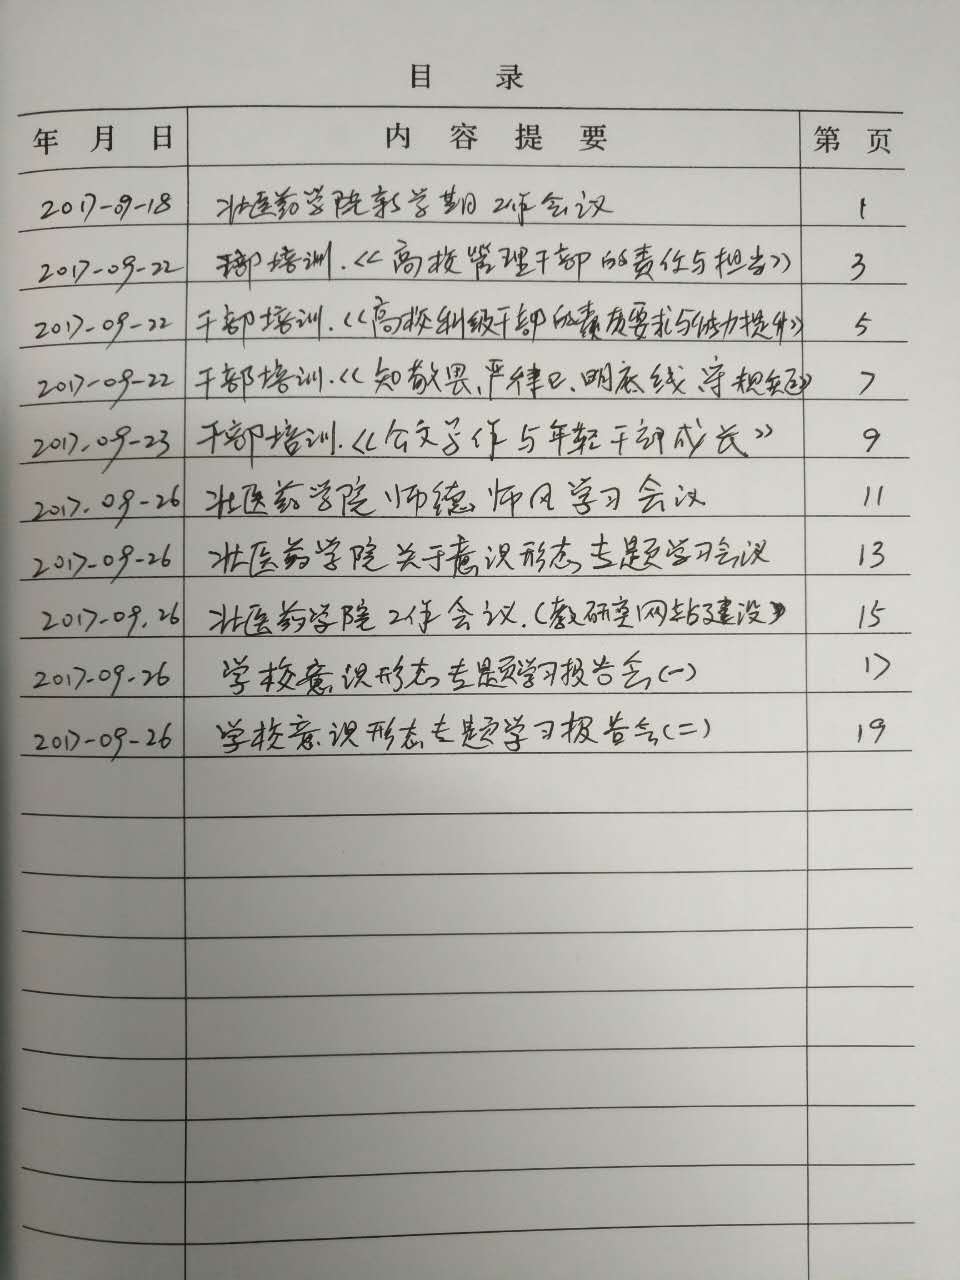 目 录
年 月 日 内 容 提 要 第 页
2017-09-18 壮医药学院新学期工作会议 1
2017-09-22 干部培训.《高校管理干部的责任与担当》 3
2017-09-22 干部培训.《高校科级干部的素质要求与能力提升》 5
2017-09-22 干部培训.《知敬畏、严律己、明底线、守规矩》 7
2017.09-23 干部培训.《公文写作与年轻干部成长》 9
2017.09-26 壮医药学院师德师风学习会议 11
2017-09-26 壮医药学院关于意识形态专题学习会议 13
2017-09.26 壮医药学院工作会议.(教研室网站建设) 15
2017-09-26 学校意识形态专题学习报告会(一) 17
2017-09-26 学校意识形态专题学习报告会(二) 19